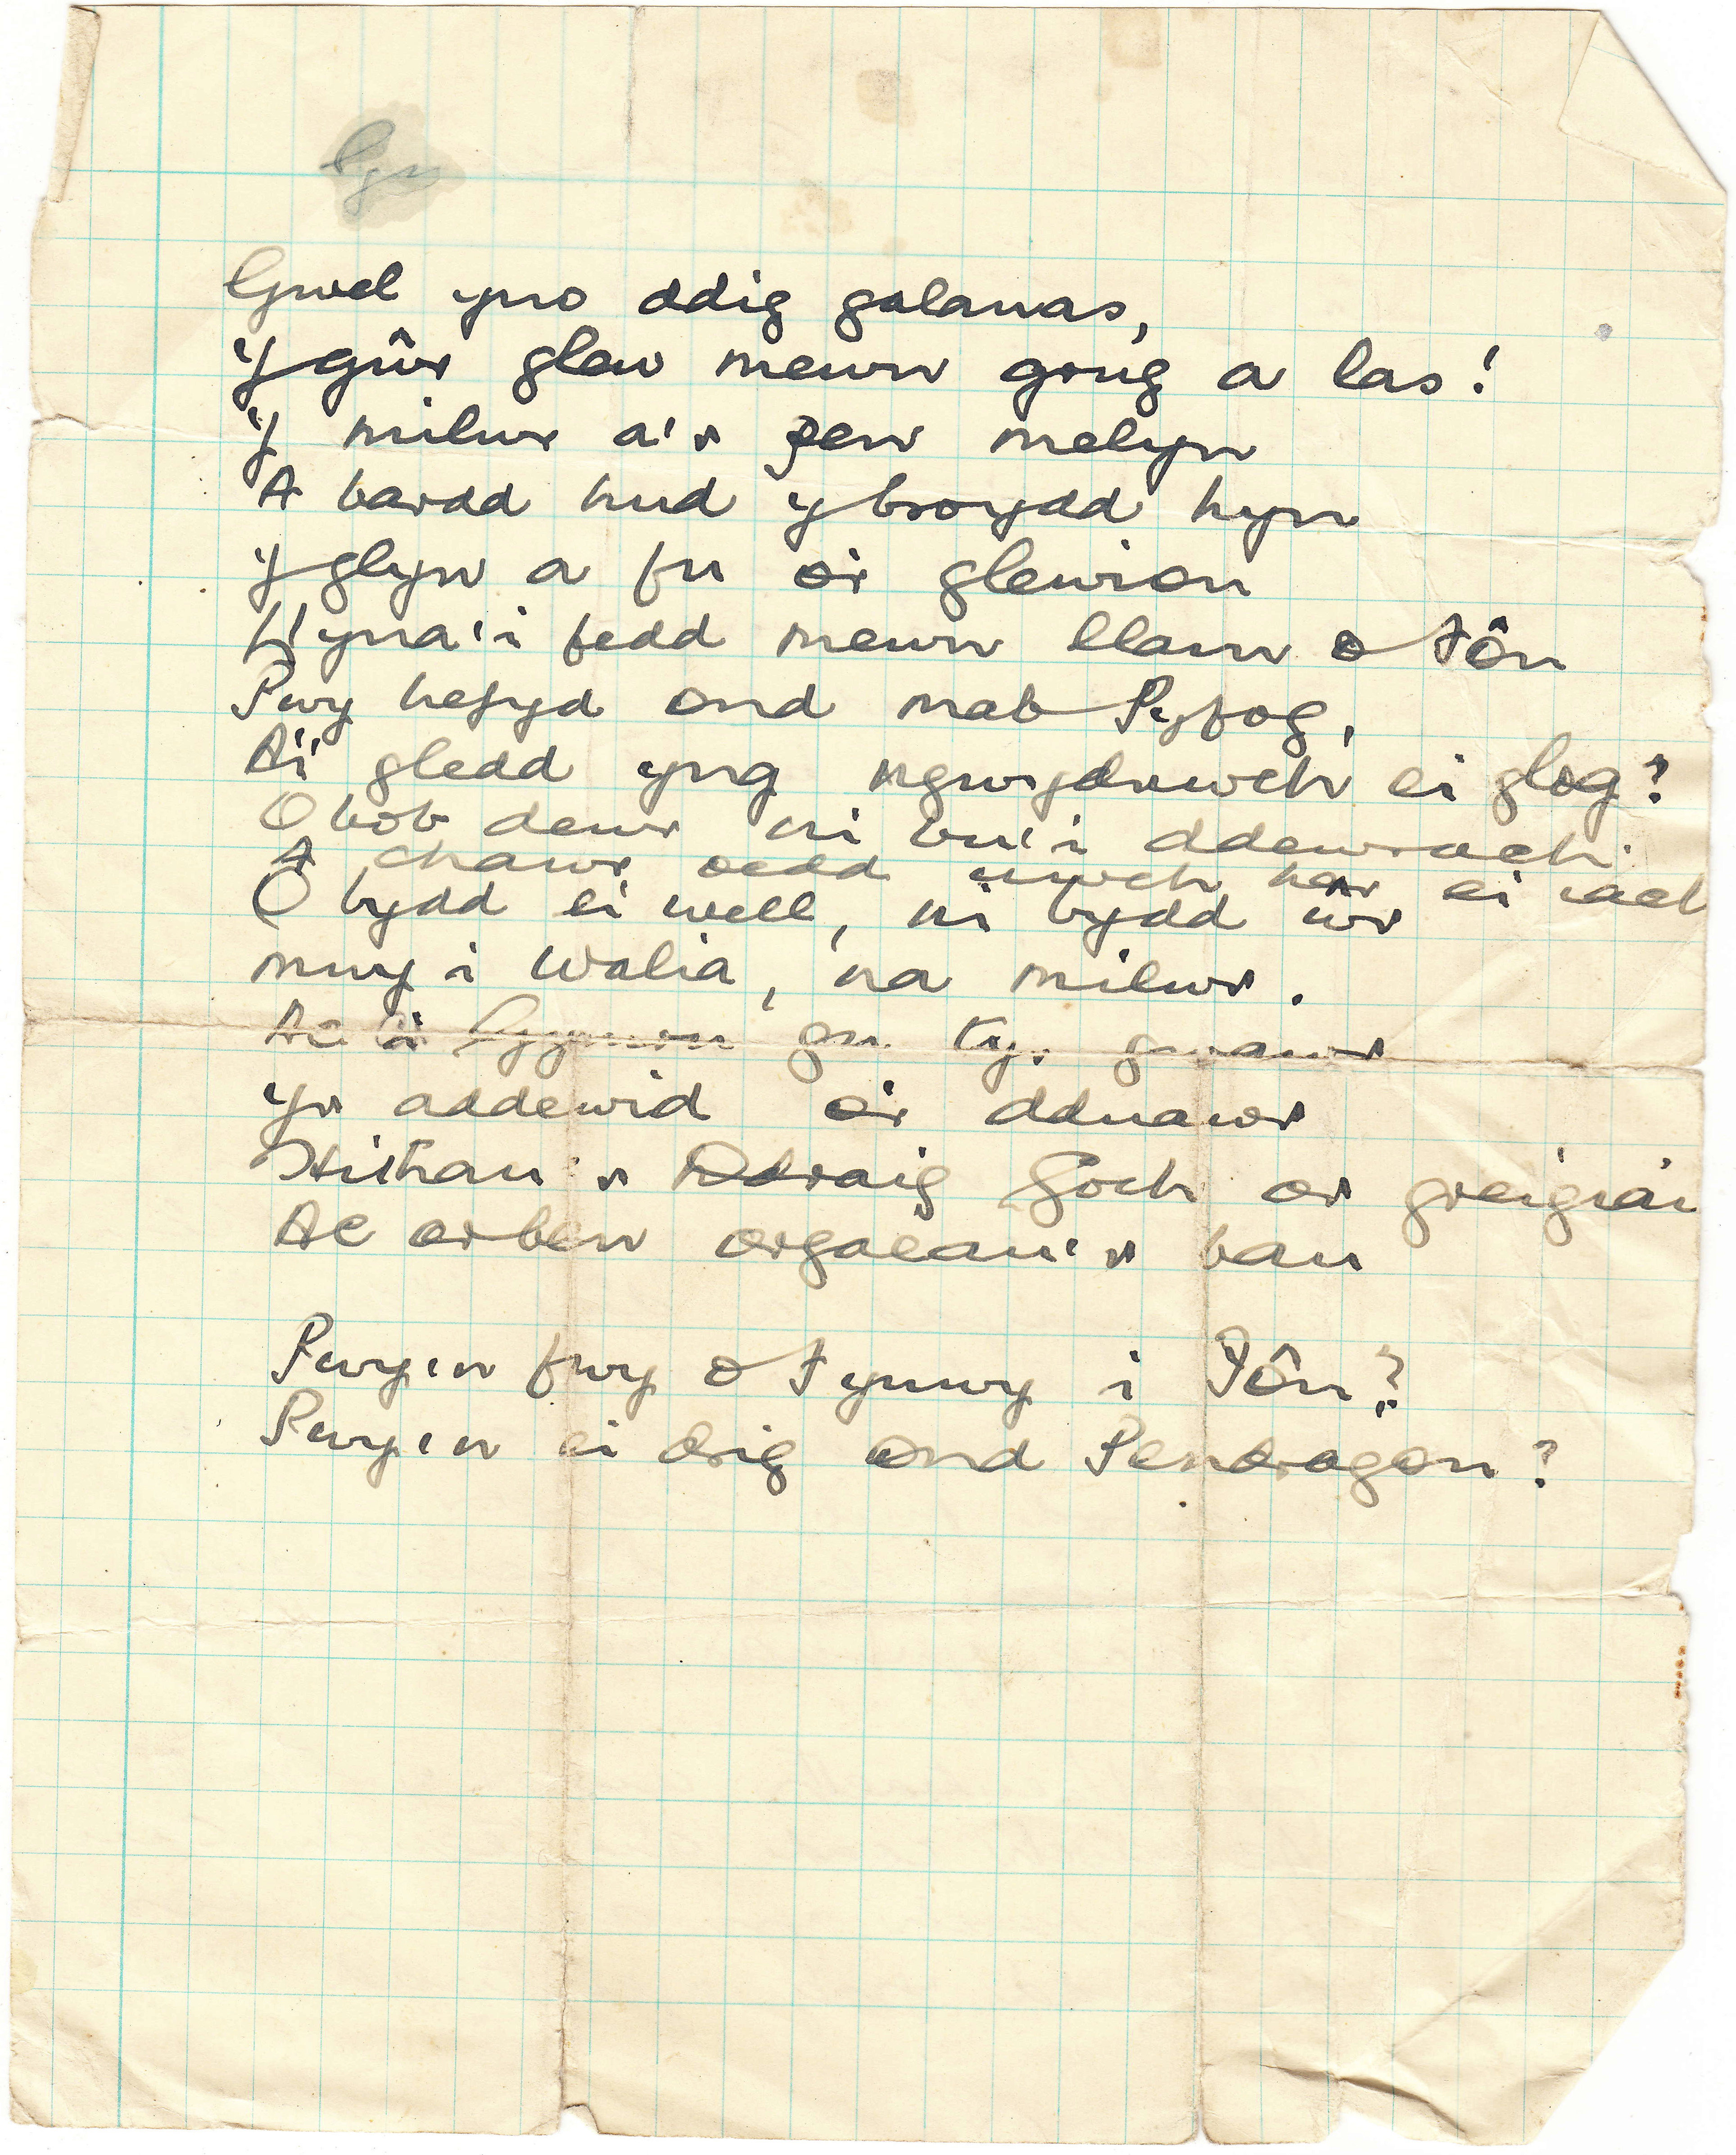 Gwel yno ddig galanas,
Y gŵr glew mewn grug a las!
Y milwr a'r pen melyn
A bardd hud y broydd hyn
Y glyn a fu i'r glewion
Llyna'i fedd mewn llam o Iôn
Pwy hefyd ond mab Pyfog,
A'i gledd yng ngwydrwch ei glog?
O bob dewr ni bu'i ddewrach
A chawr oedd uwch na'r ei iach
O bydd ei well, ni bydd ŵr
mwy i Walia, na milwr.
Ac i gu ty. gwawr
yr addewid i'r dduawr
Hithau'r Ddraig Goch or
Ac orben orgaeau'r bau
Pwy'n fwy o Fynwy i Fôn?
Pwy'n ei drig ond Pendragon?